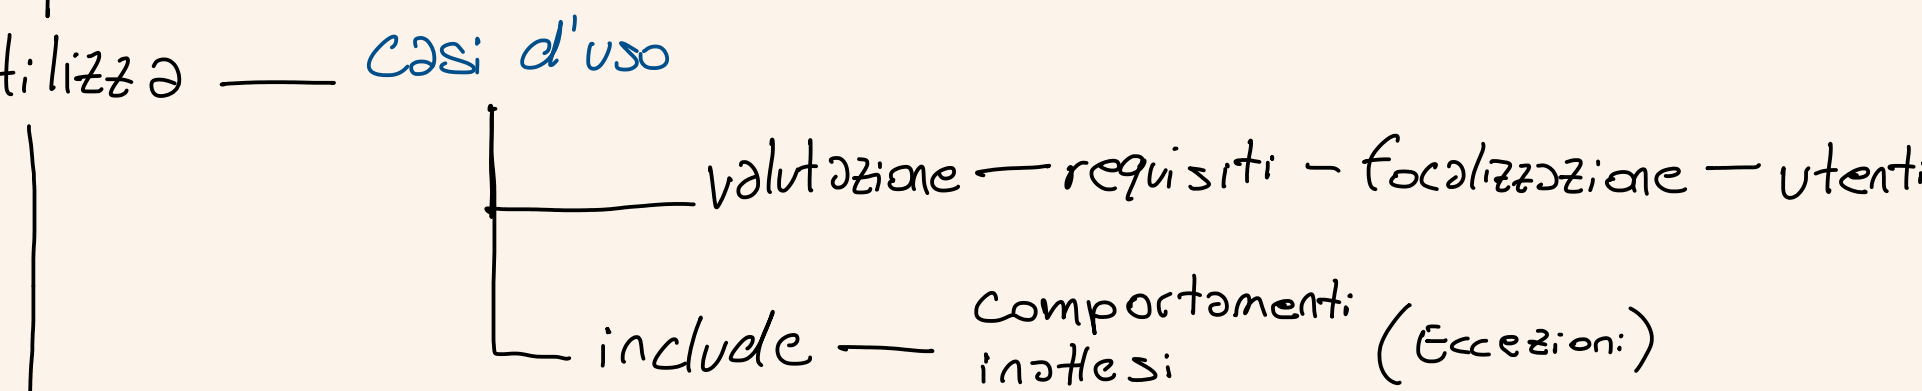 tilizza — casi d'uso
valutazione — requisiti – focalizzazione — utenti
include — comportamenti (Eccezioni)
inattesi